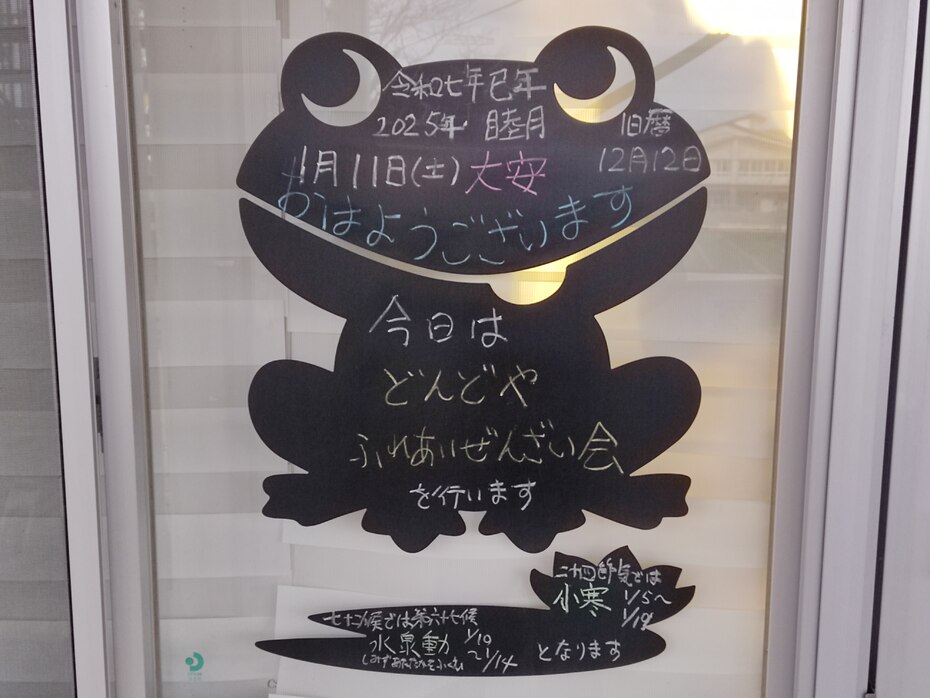 令和七年巳年
2025年 睦月
旧暦
12月12日
1月11日(土)大安
おはようございます
今日は
どんどや
ふれあいぜんざい会
を行います
二十四節気では
小寒 1/5〜
1/19
七十二候では第六十七候
水泉動 1/10
〜1/14
しみずあたたかをふくむ
となります